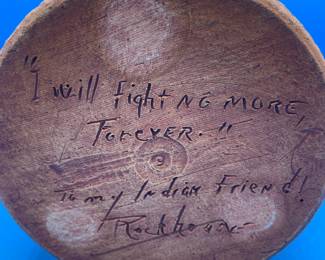 "I will fight NO MORE,
FOREVER."
To my Indian Friend!
Rockhouse